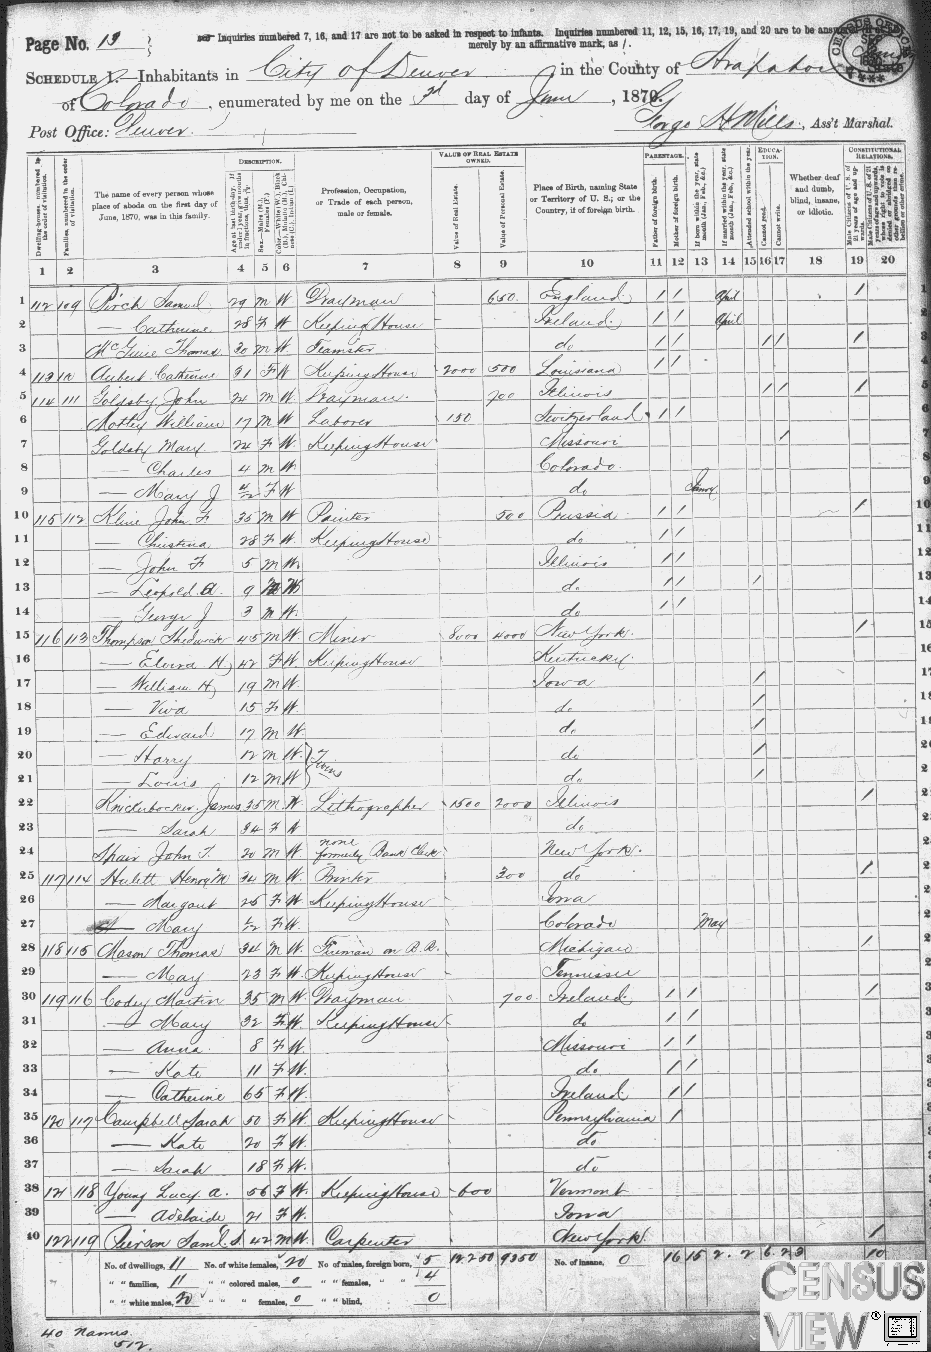 Page No. 13
Inquiries numbered 7, 16, and 17 are not to be asked in respect to infants. Inquiries numbered 11, 12, 15, 16, 17, 19, and 20 are to be answered
merely by an affirmative mark, as /.
SCHEDULE 1.—Inhabitants in City of Denver in the County of Arapahoe
of Colorado, enumerated by me on the 3d day of June, 1870.
Post Office: Denver George H Mills, Ass't Marshal.
The name of every person whose place of abode on the first day of June, 1870, was in this family.
DESCRIPTION.
Profession, Occupation, or Trade of each person, male or female.
VALUE OF REAL ESTATE OWNED.
Value of Real Estate.
Value of Personal Estate.
Place of Birth, naming State or Territory of U. S.; or the Country, if of foreign birth.
PARENTAGE.
Father of foreign birth.
Mother of foreign birth.
If born within the year, state month (Jan., Feb., &c.)
If married within the year, state month (Jan., Feb., &c.)
Attended school within the year.
EDUCATION.
Cannot read.
Cannot write.
Whether deaf and dumb, blind, insane, or idiotic.
CONSTITUTIONAL RELATIONS.
1 2 3 4 5 6 7 8 9 10 11 12 13 14 15 16 17 18 19 20
1 112 109 Pirch Samuel 29 M W Drayman 650 England / / April /
2 — Catherine 28 F W Keeping House Ireland / / April
3 McGuire Thomas 30 M W Teamster do / / / / /
4 113 110 Aubert Catherine 31 F W Keeping House 2000 500 Louisiana / /
5 114 111 Goldsby John 24 M W Drayman 700 Illinois / / /
6 Motley William 17 M W Laborer 150 Switzerland / /
7 Goldsby Mary 24 F W Keeping House Missouri /
8 — Charles 4 M W Colorado
9 — Mary J 4/12 F W do
10 115 112 Kline John F 35 M W Painter 500 Prussia / / /
11 — Christina 28 F W Keeping House do / /
12 — John F 5 M W Illinois / /
13 — Leopold A 9 M W do / / /
14 — George J 3 M W do / /
15 116 113 Thompson 45 M W Miner 8000 4000 New York /
16 — Elvira H 42 F W Keeping House Kentucky
17 — William H 19 M W Iowa /
18 — Viva 15 F W do /
19 — Edward 17 M W do /
20 — Harry 12 M W Twins do /
21 — Louis 12 M W do /
22 Knickerbocker James 35 M W Lithographer 1500 2000 Illinois /
23 — Sarah 34 F W do
24 Spair John T. 20 M W none formerly Bank Clerk New York
25 117 114 Hulett Henry M 34 M W Printer 300 do /
26 — Margaret 25 F W Keeping House Iowa
27 — Mary F W Colorado May
28 118 115 Mason Thomas 34 M W Fireman on R.R. Michigan /
29 — May 23 F W Keeping House Tennessee
30 119 116 Cody Martin 35 M W Drayman 700 Ireland / / /
31 — Mary 32 F W Keeping House do / /
32 — Anna 8 F W Missouri / /
33 — Kate 11 F W do / /
34 — Catherine 65 F W Ireland / /
35 120 117 Campbell Sarah 50 F W Keeping House Pennsylvania /
36 — Kate 20 F W do
37 — Sarah 18 F W do
38 121 118 Young Lucy A. 56 F W Keeping House 600 Vermont
39 — Adelaide 21 F W Iowa
40 122 119 Pierson Saml. S. 42 M W Carpenter New York /
No. of dwellings, 11 No. of white females, 20 No. of males, foreign born, 5 12,250 9350 No. of insane, 0 16 15 2 2 6 10
" " families, 11 " " colored males, 0 " " females, " " 4
" " white males, 20 " " females, 0 " " blind, 0
40 names
512.
CENSUS
VIEW®